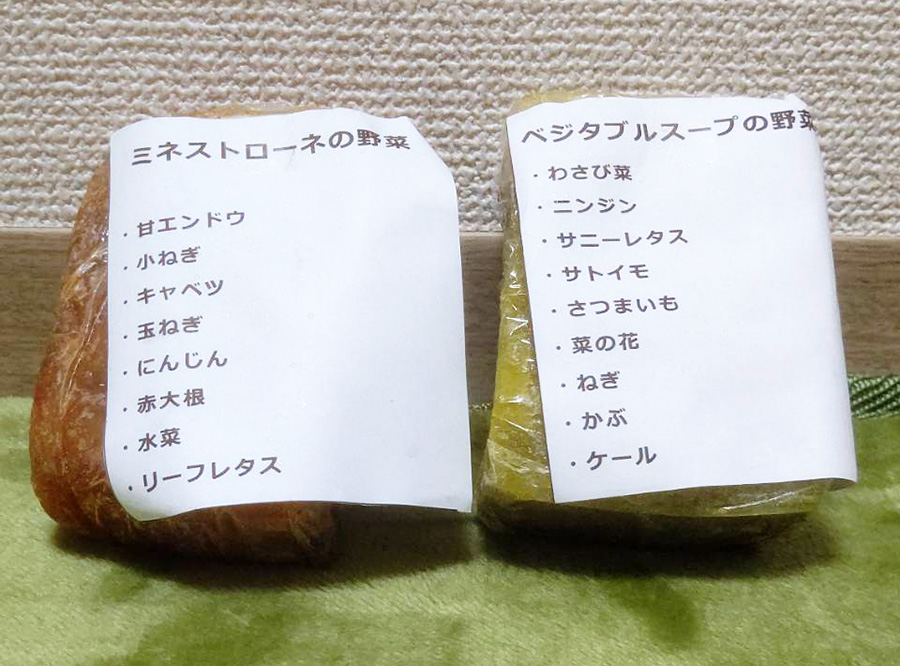 ミネストローネの野菜
・甘エンドウ
・小ねぎ
・キャベツ
・玉ねぎ
・にんじん
・赤大根
・水菜
・リーフレタス
ベジタブルスープの野菜
・わさび菜
・ニンジン
・サニーレタス
・サトイモ
・さつまいも
・菜の花
・ねぎ
・かぶ
・ケール